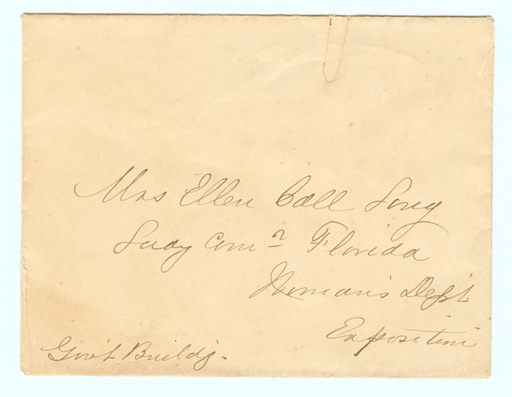 Mrs Ellen Call Long
Lady Comr Florida
Woman's Dept
Exposition
Gov't Buildg.